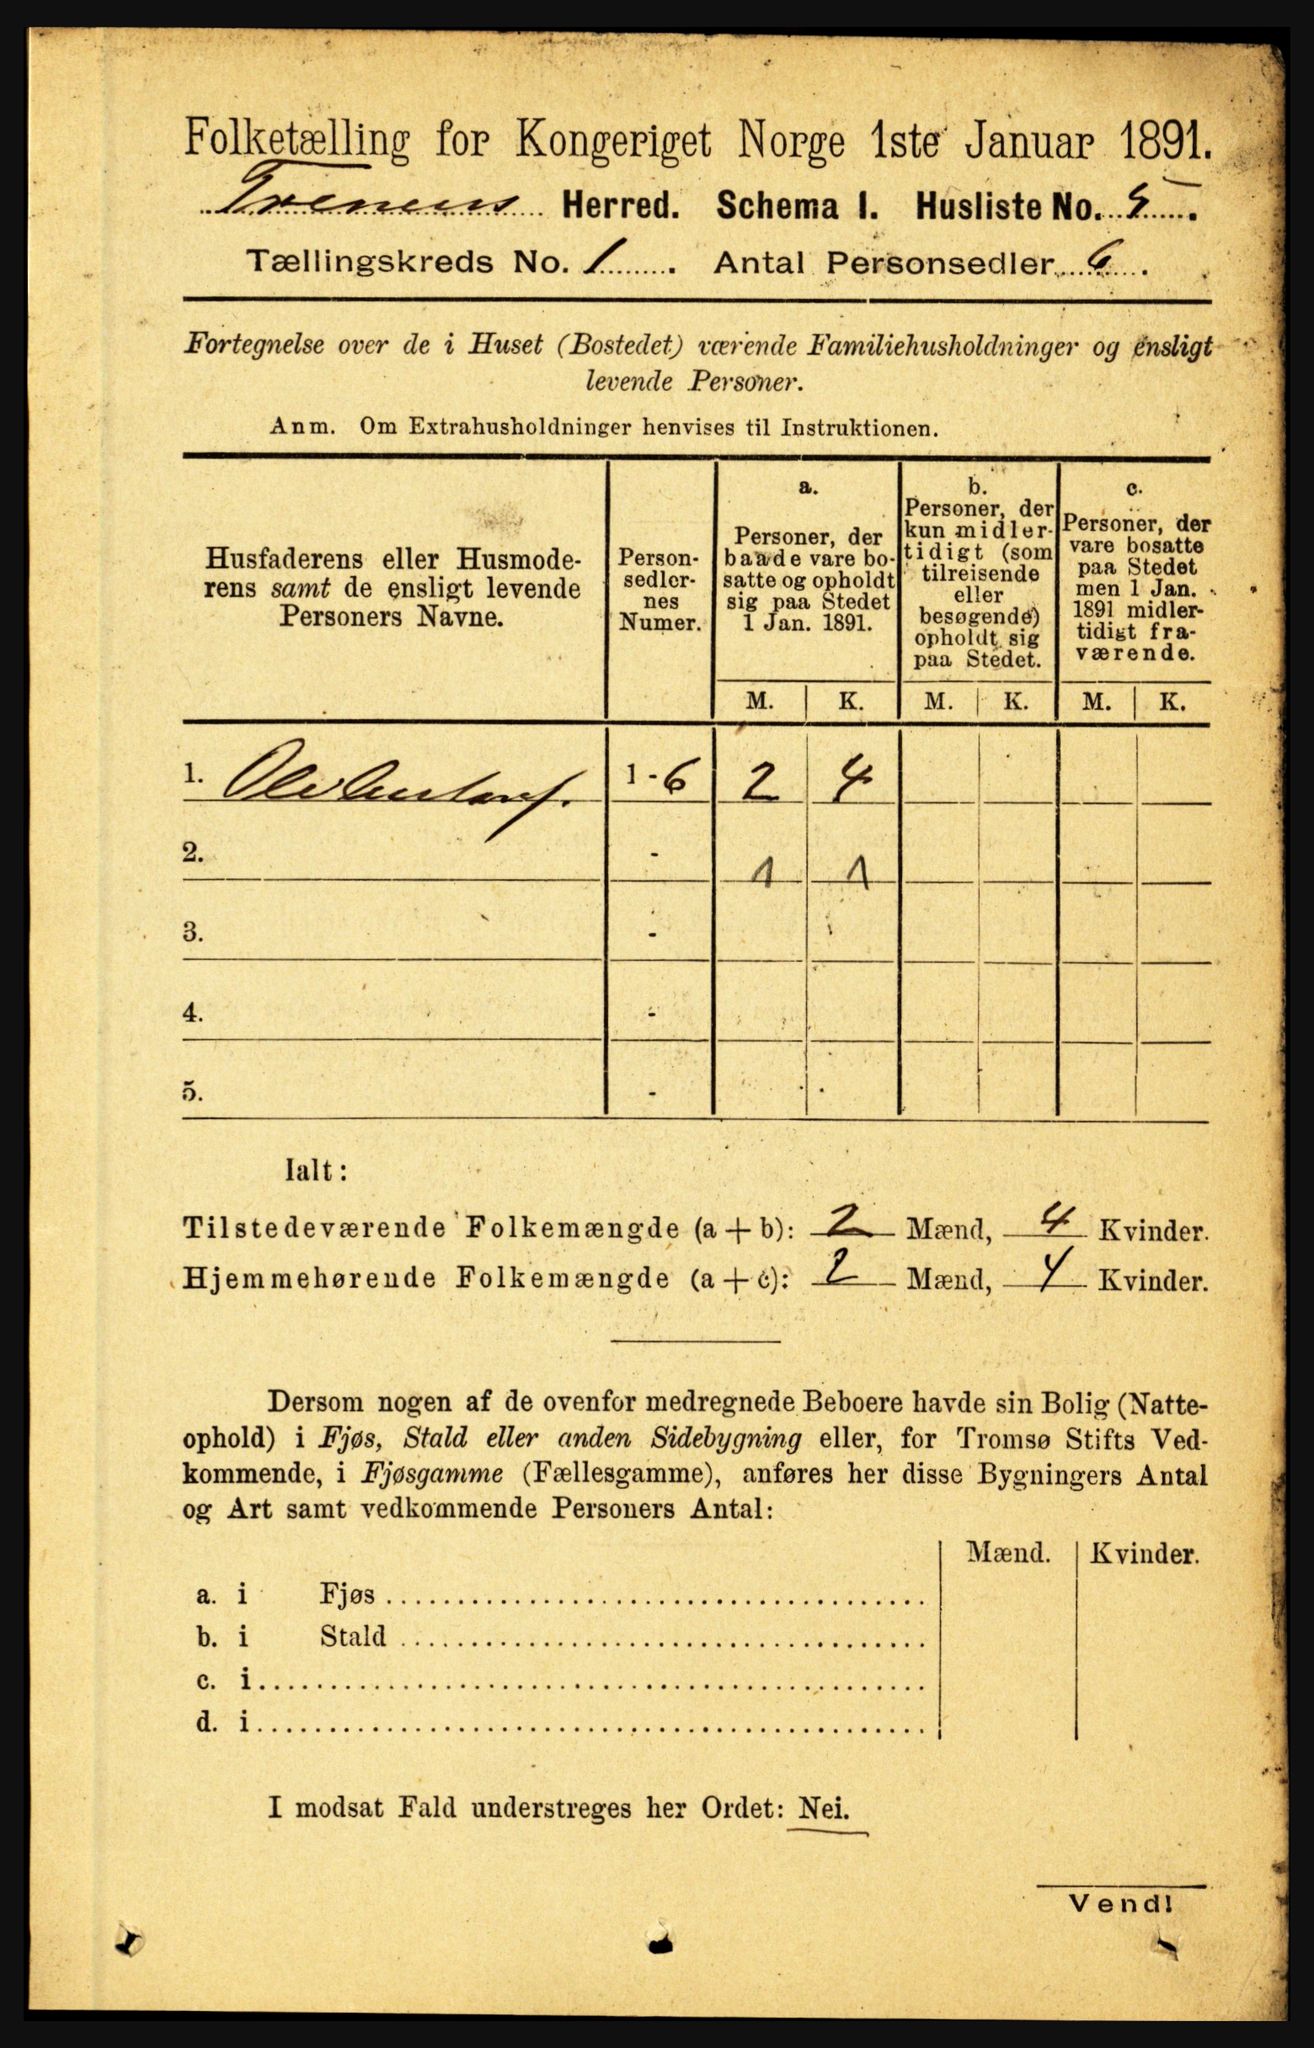 Folketælling for Kongeriget Norge 1ste Januar 1891.
Trænens Herred. Schema I. Husliste No. 5.
Tællingskreds No. 1. Antal Personsedler 6.
Fortegnelse over de i Huset (Bostedet) værende Familiehusholdninger og ensligt
levende Personer.
Anm. Om Extrahusholdninger henvises til Instruktionen.
Husfaderens eller Husmoderens samt de ensligt levende Personers Navne.
Personsedlernes Numer.
a. Personer, der baade vare bosatte og opholdt sig paa Stedet 1 Jan. 1891.
b. Personer, der kun midlertidigt (som tilreisende eller besøgende) opholdt sig paa Stedet.
c. Personer, der vare bosatte paa Stedet men 1 Jan. 1891 midlertidigt fraværende.
M. K. M. K. M. K.
1. Ole 1-6 2 4
2. - 1 1
3. -
4. -
5. -
Ialt:
Tilstedeværende Folkemængde (a + b): 2 Mænd, 4 Kvinder.
Hjemmehørende Folkemængde (a + c): 2 Mænd, 4 Kvinder.
Dersom nogen af de ovenfor medregnede Beboere havde sin Bolig (Natte-
ophold) i Fjøs, Stald eller anden Sidebygning eller, for Tromsø Stifts Ved-
kommende, i Fjøsgamme (Fællesgamme), anføres her disse Bygningers Antal
og Art samt vedkommende Personers Antal:
Mænd. Kvinder.
a. i Fjøs
b. i Stald
c. i
d. i
I modsat Fald understreges her Ordet: Nei.
Vend!